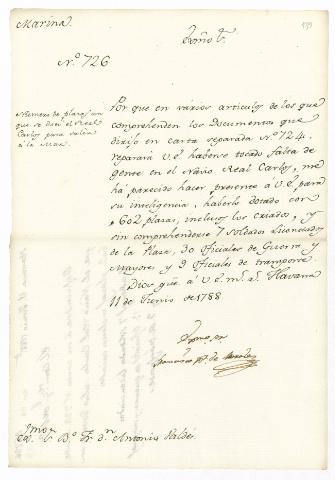 Marina.
Exmo Sor.
199
Nº. 726
Numero de plazas con
que se dotó el Real
Carlos para salir
á la Mar.
Por que en varios articulos de los que
comprehenden los Documentos que
dirijo en carta separada Nº. 724.
reparará V.E. haberse tocado falta de
gente en el Navio Real Carlos, me
há parecido hacer presente á V.E. para
su inteligencia, haberlo dotado con
602 plazas, inclusos los criados, y
sin comprehenderse 7 soldados Licenciados
de la Plaza, 30 oficiales de Guerra y
Mayores y 9 oficiales de transporte.
Dios gue. á V.E. ms. as. Havana
11 de Junio de 1788
Exmo. Sor.
Francisco de
Exmo. Sor. Bo. Fr. dn. Antonio Valdés.